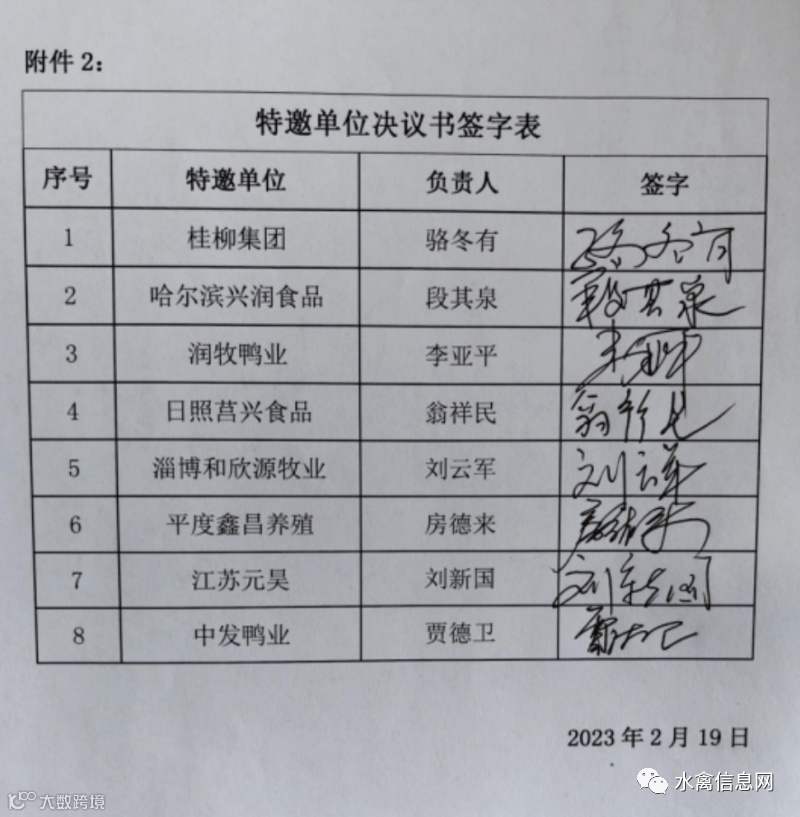 附件 2：
特邀单位决议书签字表
序号 特邀单位 负责人 签字
1 桂柳集团 骆冬有 骆冬有
2 哈尔滨兴润食品 段其泉 段其泉
3 润牧鸭业 李亚平
4 日照莒兴食品 翁祥民 翁祥民
5 淄博和欣源牧业 刘云军 刘云军
6 平度鑫昌养殖 房德来 房德来
7 江苏元昊 刘新国 刘新国
8 中发鸭业 贾德卫
2023 年 2 月 19 日
水禽信息网
大数跨境